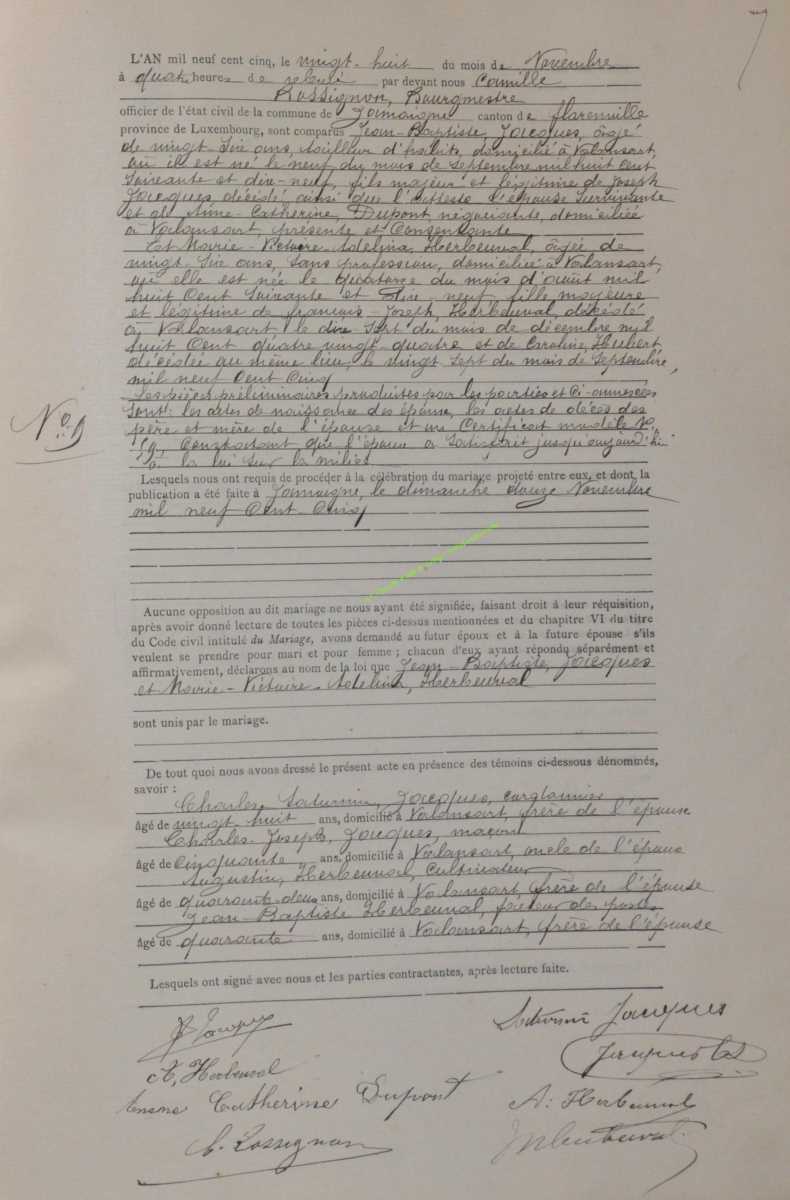 L'AN mil neuf cent cinq, le vingt-huit du mois de Novembre
à quatre heures de relevée par devant nous Camille
Rossignon, Bourgmestre
officier de l'état civil de la commune de Jamoigne canton de Florenville
province de Luxembourg, sont comparus Jean-Baptiste, Jacques, âgé
de vingt-six ans, tailleur d'habits, domicilié à Valansart,
où il est né le neuf du mois de Septembre mil huit Cent
Soixante et dix-neuf, fils majeur et légitime de Joseph
Jacques, décédé ainsi que l'atteste l'épouse survivante
et de Anne-Catherine, Dupont, négociante, domiciliée
à Valansart, présente et Consentante
Et Marie-Victoire-Adelina, Herbeuval, âgée de
vingt-six ans, sans profession, domiciliée à Valansart,
où elle est née le quatorze du mois d'août mil
huit Cent Soixante et dix-neuf, fille majeure
et légitime de françois-Joseph, Herbeuval, décédé
à Valansart le dix-sept du mois de décembre mil
huit Cent quatre vingt quatre et de Caroline, Hubert
décédée au même lieu, le vingt sept du mois de Septembre,
mil neuf Cent Cinq
Les pièces préliminaires produites par les parties et Ci-annexées
sont: les actes de naissance des époux, les actes de décès des
père et mère de l'épouse et un Certificat modèle N°
Constatant que l'époux a satisfait jusqu'aujourd'hui
à la loi sur la milice
N° 9
Lesquels nous ont requis de procéder à la célébration du mariage projeté entre eux, et dont la
publication a été faite à Jamoigne, le dimanche douze Novembre
mil neuf Cent Cinq
Aucune opposition au dit mariage ne nous ayant été signifiée, faisant droit à leur réquisition,
après avoir donné lecture de toutes les pièces ci-dessus mentionnées et du chapitre VI du titre
du Code civil intitulé du Mariage, avons demandé au futur époux et à la future épouse s'ils
veulent se prendre pour mari et pour femme ; chacun d'eux ayant répondu séparément et
affirmativement, déclarons au nom de la loi que Jean-Baptiste, Jacques
et Marie-Victoire-Adelina, Herbeuval
sont unis par le mariage.
De tout quoi nous avons dressé le présent acte en présence des témoins ci-dessous dénommés,
savoir :
Charles, Saturnin, Jacques,
âgé de vingt huit ans, domicilié à Valansart, frère de l'épouse
Charles-Joseph, Jacques, maçon
âgé de cinquante ans, domicilié à Valansart, oncle de l'époux
Augustin, Herbeuval, Cultivateur
âgé de quarante-deux ans, domicilié à Valansart, frère de l'épouse
Jean-Baptiste Herbeuval, facteur des postes
âgé de quarante ans, domicilié à Valansart, frère de l'épouse
Lesquels ont signé avec nous et les parties contractantes, après lecture faite.
Jacques
A, Herbeuval
Catherine Dupont
C. Rossignon
Jacques
A. Herbeuval